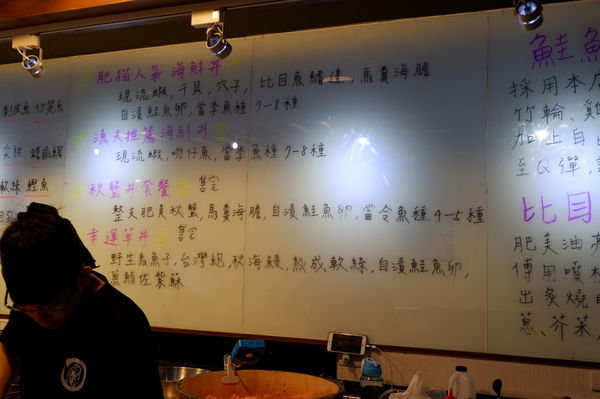 肥猫人氣 海鮮丼
現流蝦,干貝,穴子,比目魚鰭邊,馬糞海膽
自漬鮭魚卵,當季魚種 7-8種
漁夫推薦 海鮮丼
現流蝦,吻仔魚,當季魚種 7-8種
秋蟹丼套餐 售完
整隻肥美秋蟹,馬糞海膽,自漬鮭魚卵,當令魚種 4-5種
幸運草丼 售完
野生烏魚子,台灣鮑,秋海鰻,熟成軟絲,自漬鮭魚卵,
蔥鮪佐紫蘇
軟絲 鰹魚
鮭魚
採用本店
竹輪、雞
加上自
至Q彈,
比目
肥美油亮
傅用噴槍
出炙燒
蔥、芥茉